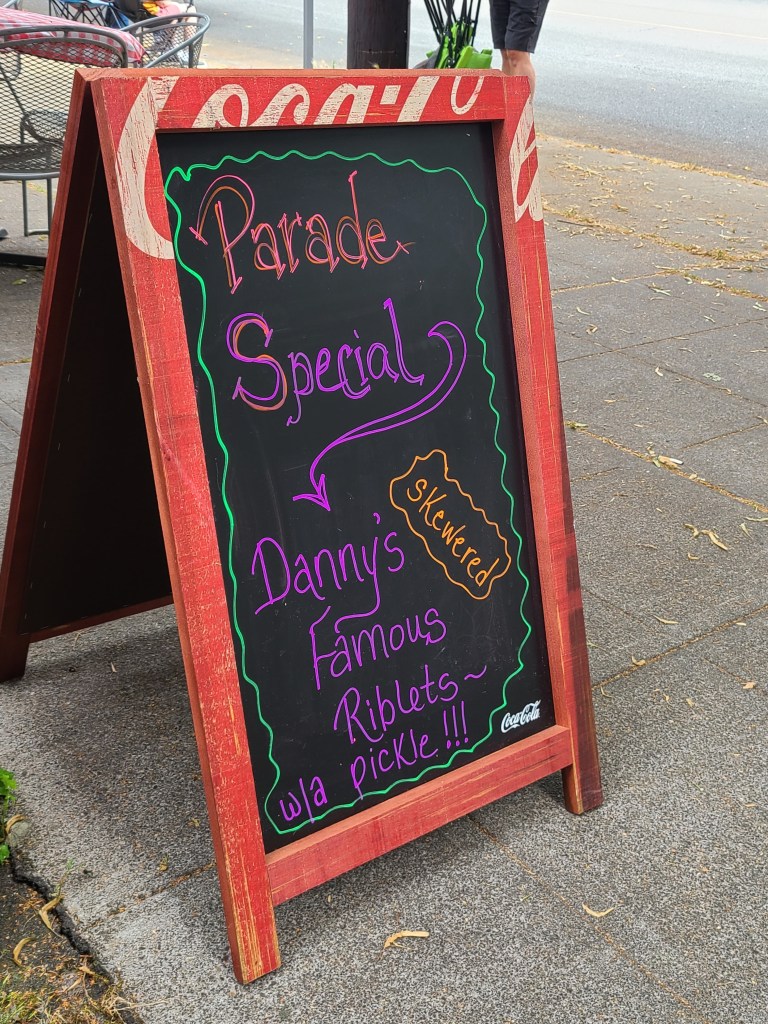 Coca-Co
Parade
Special
skewered
Danny's
Famous
Riblets~
w/a pickle!!!
Coca-Cola